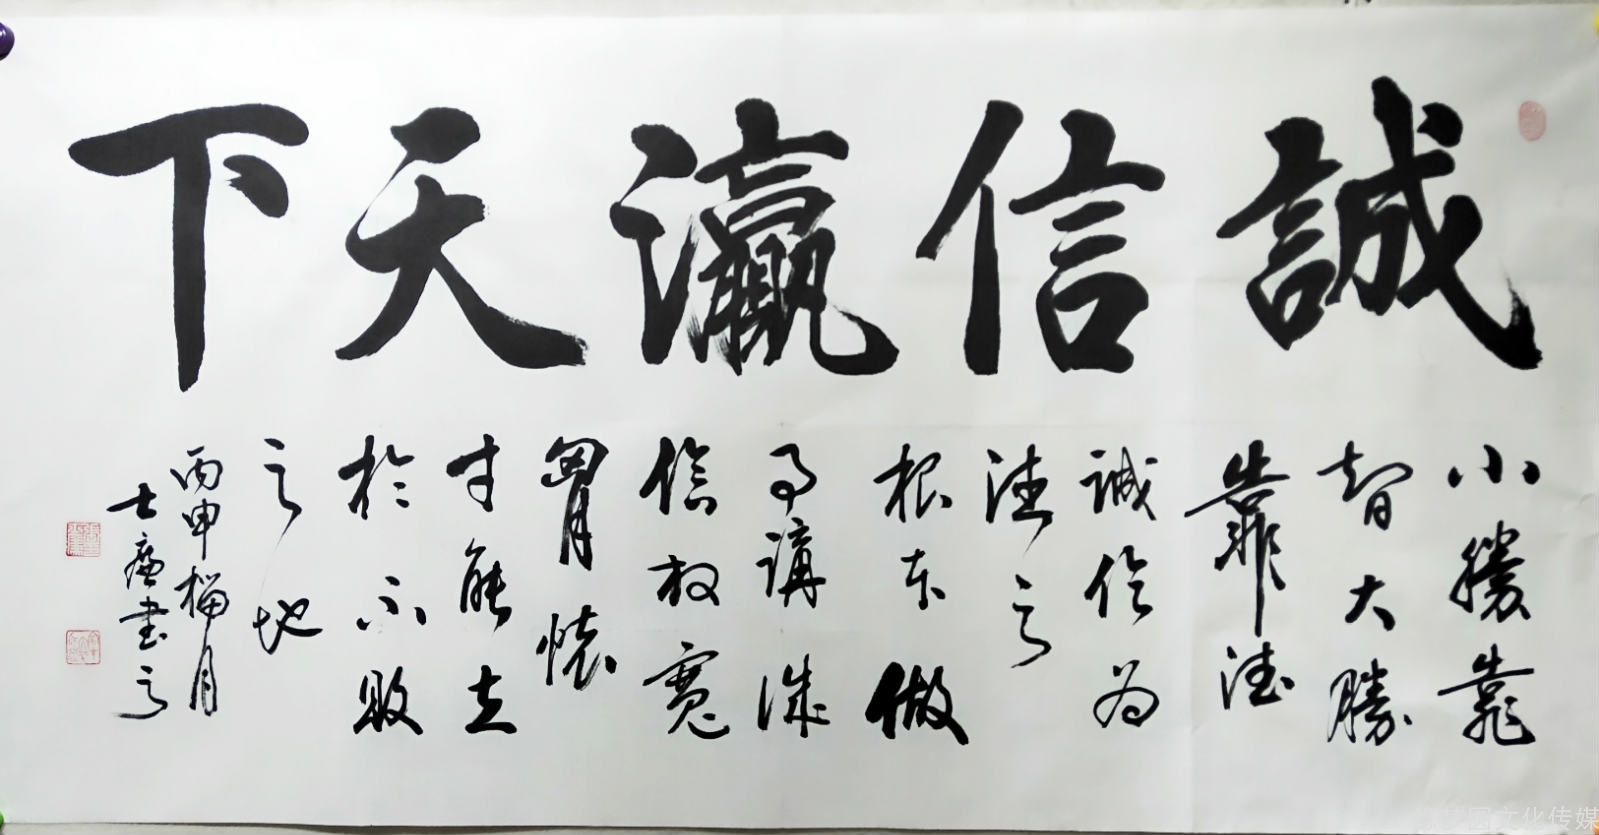 誠信瀛天下
小勝靠
智大勝
靠德
誠信为
德之
根本做
事講誠
信放寬
胷懷
才能立
於不敗
之地
丙申榴月
士書之
文化传媒